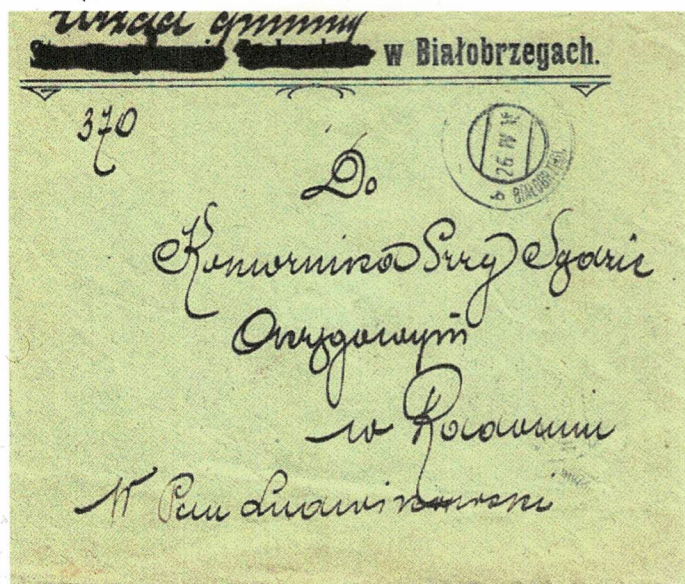 Urząd gminny
w Białobrzegach.
370
26 IV
b BIAŁOBRZEGI
Do
Komornika Przy Sądzie
Okręgowym
w Radomiu
W Pan Ludwikowski